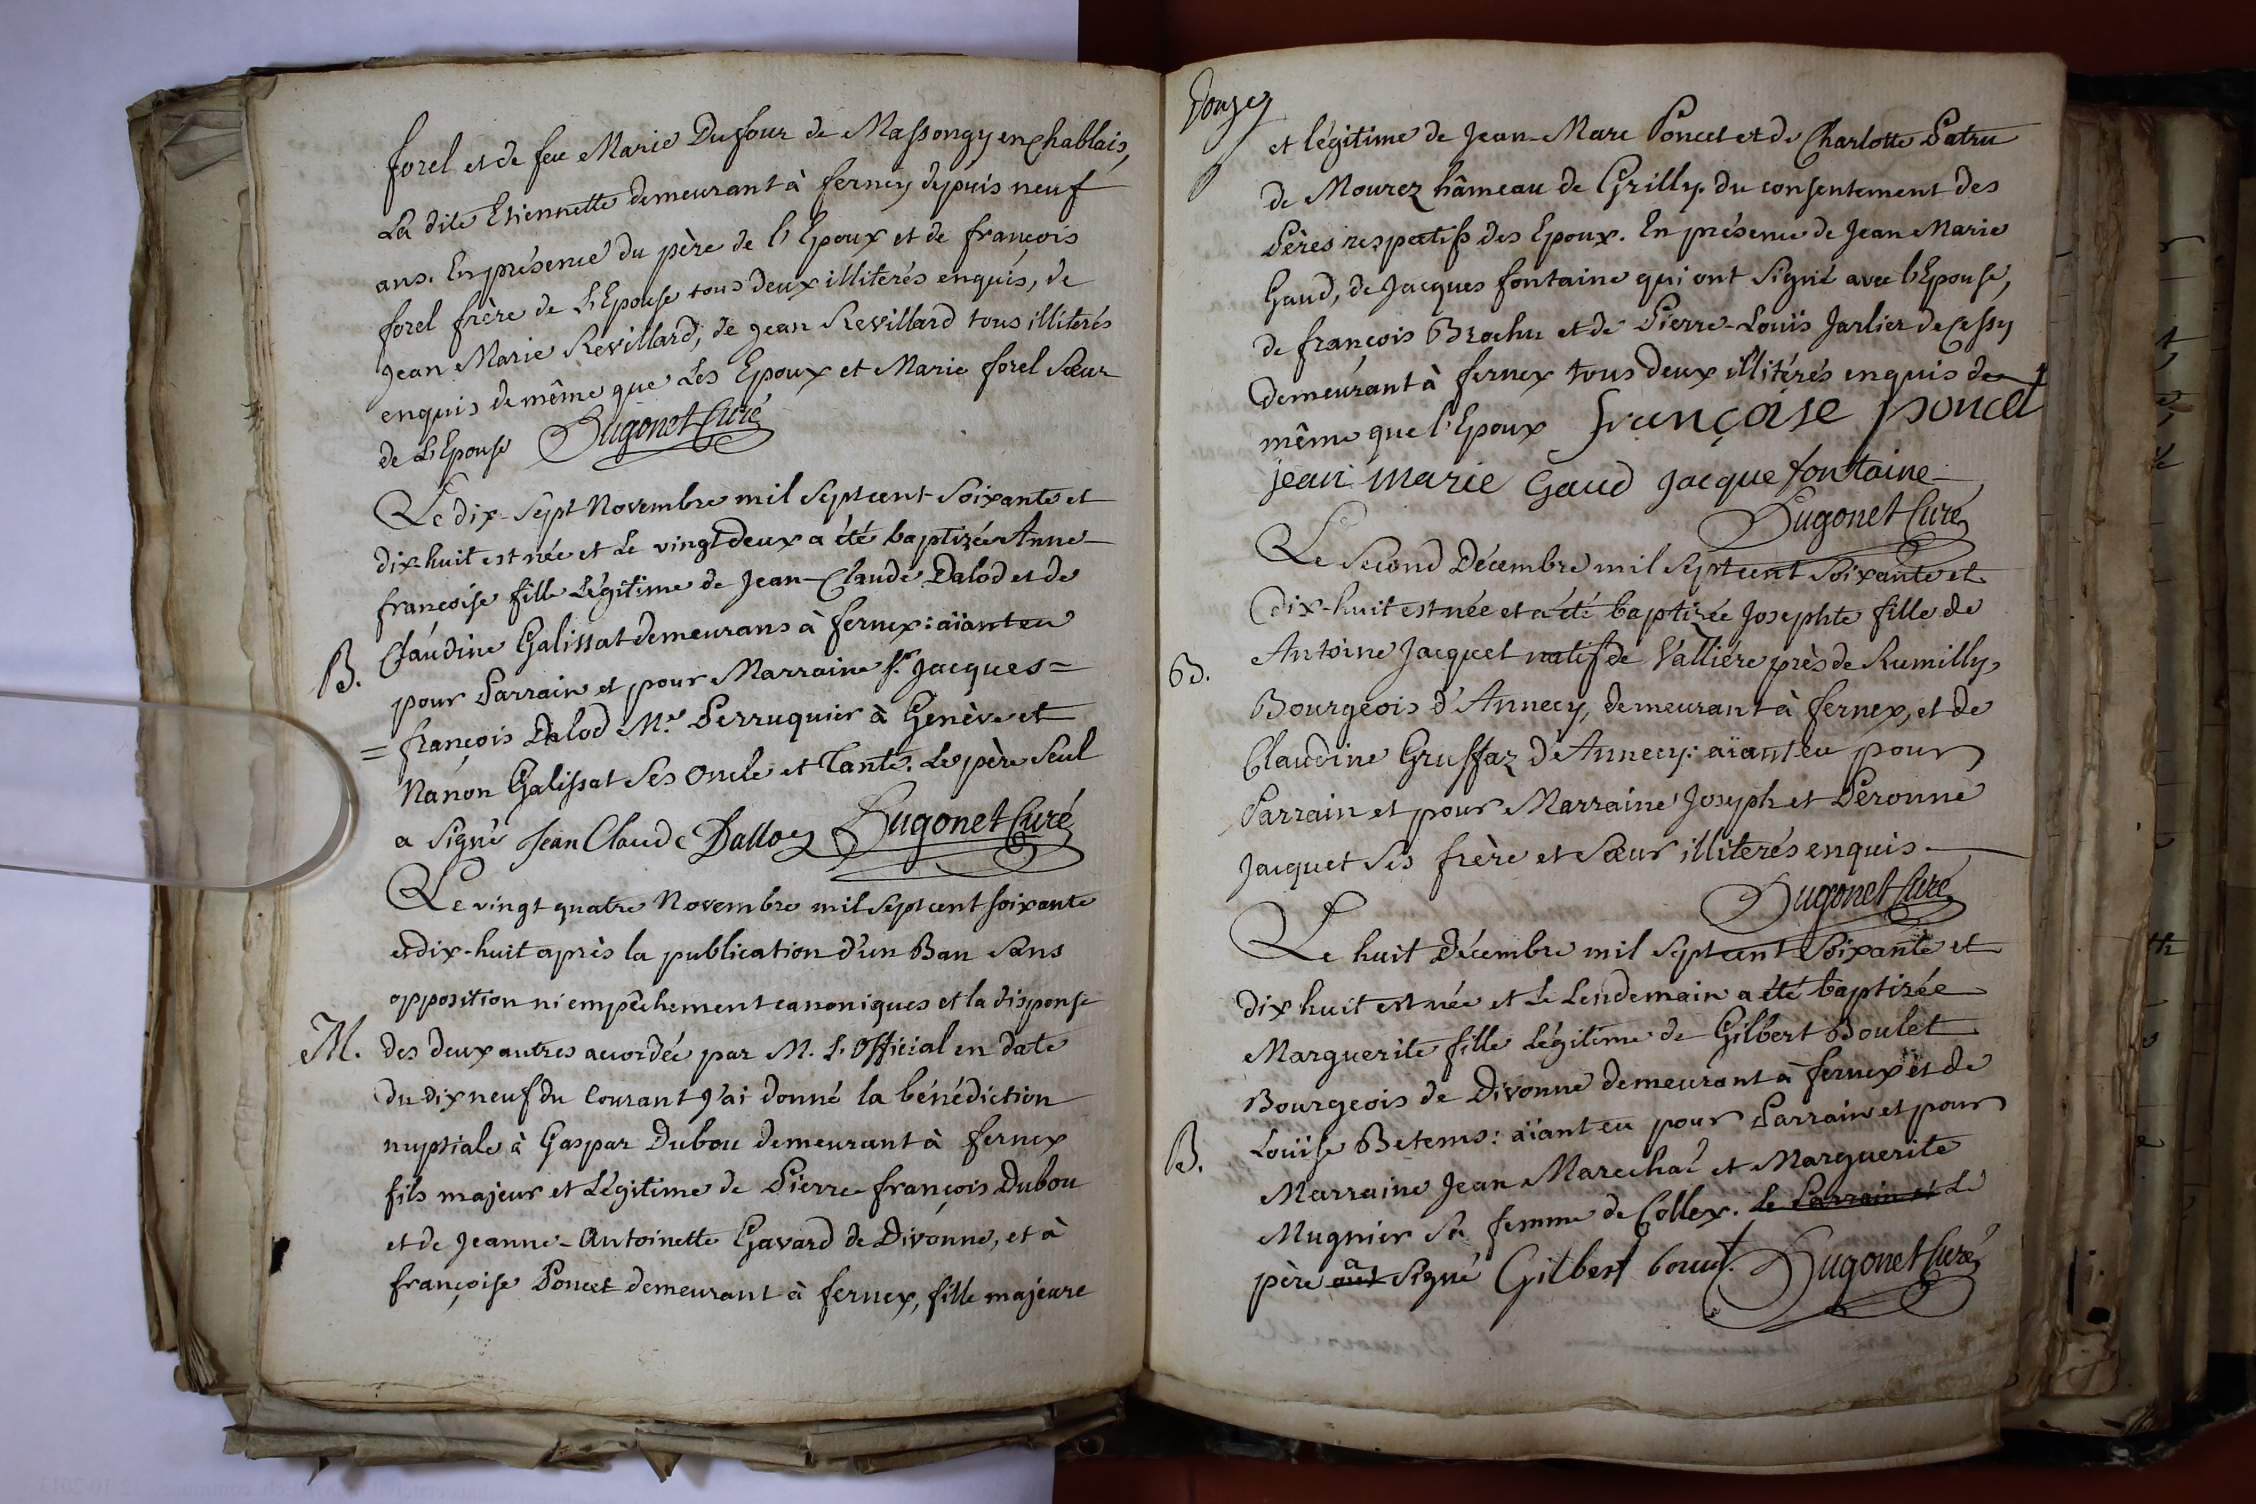 forel et de feu Marie Dufour de Massongy en Chablais,
La dite Etiennette demeurant à ferney depuis neuf
ans. En présence du père de l'Epoux et de françois
forel frère de L'Epouse tous deux illiterés enquis, de
Jean Marie Revillard, de Jean Revillard tous illiterés
enquis de même que Les Epoux et Marie forel Sœur
de L'Epouse Hugonet Curé
Le dix-sept Novembre mil sept cent Soixante et
dix huit est née et Le vingt deux a été baptizée Anne
françoise fille Légitime de Jean-Claude Dalod et de
B. Claudine Galissat demeurans à fernex: aïant eu
pour Parrain et pour Marraine Sr. Jacques=
=françois Dalod Me. Perruquier à Genève et
Nanon Galissat Ses Oncle et Tante. Le père Seul
a Signé Jean Claude Dalloz Hugonet Curé
Le vingt quatre Novembre mil Sept cent soixante
et dix-huit après la publication d'un Ban Sans
opposition ni empêchement canoniques et la dispense
M. des deux autres accordée par M. L'Official en date
du dix neuf du Courant J'ai donné la bénédiction
nuptiale à Gaspar Dubou demeurant à fernex
fils majeur et Légitime de Pierre françois Dubou
et de Jeanne-Antoinette Gavard de Divonne, et à
françoise Poncet demeurant à fernex, fille majeure
Douze
et légitime de Jean-Marc Poncet et de Charlotte Patru
de Mourez hâmeau de Grilly. du consentement des
Pères respectifs des Epoux. En présence de Jean Marie
Gaud, de Jacques fontaine qui ont Signé avec l'Epouse,
de françois Brochu et de Pierre-Louïs Jarlier de Cessy
demeurant à fernex tous deux illitérés enquis de
même que l'Epoux françoise poncet
jean marie Gaud Jacque fontaine
Hugonet Curé
Le Second Décembre mil Sept cent Soixante et
dix-huit est née et a été baptizée Josephte fille de
B. Antoine Jacquet natif de Vallière près de Rumilly,
Bourgeois d'Annecy, demeurant à fernex, et de
Claudine Gruffaz d'Annecy: aïant eu pour
Parrain et pour Marraine Joseph et Péronne
Jacquet Ses frère et Sœur illiterés enquis.
Hugonet Curé
Le huit Décembre mil Sept cent Soixante et
dix huit est née et Le Lendemain a été baptizée
Marguerite fille Légitime de Gilbert Boulet
Bourgeois de Divonne demeurant à fernex et de
B. Louïse Betems: aïant eu pour Parrain et pour
Marraine Jean Marechal et Marguerite
Mugnier Sa femme de Collex. Le Parrain et Le
père ont a Signé Gilbert boulet. Hugonet Curé